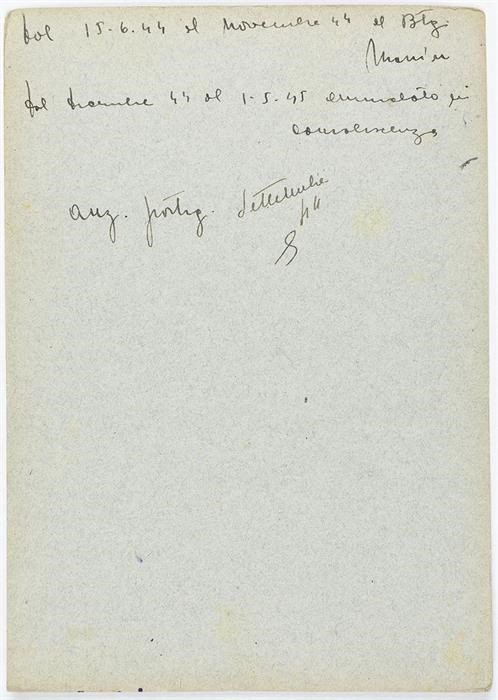 Dal 15-6-44 al Novembre 44 al Btg.
dal dicembre 44 al 1-5-45 ammalato in
convalescenza
Anz. partig. Settembre
44